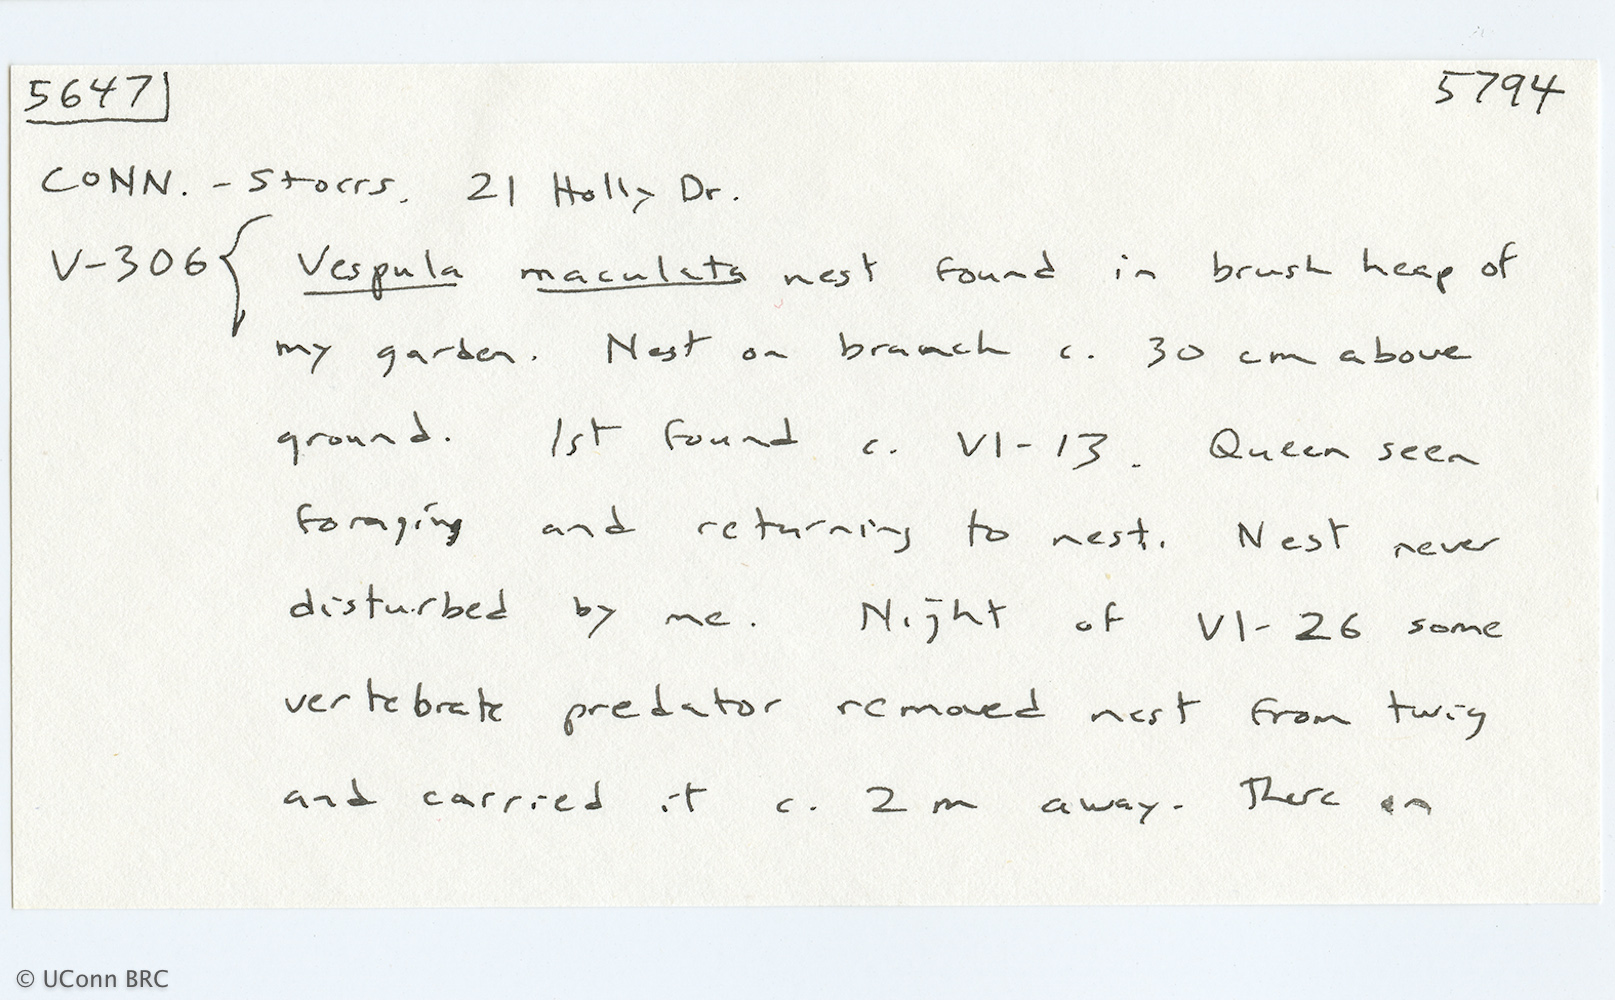 5647 5794
CONN. - Storrs. 21 Holly Dr.
V-306 { Vespula maculata nest found in brush heap of
my garden. Nest on branch c. 30 cm above
ground. 1st found c. VI-13. Queen seen
foraging and returning to nest. Nest never
disturbed by me. Night of VI-26 some
vertebrate predator removed nest from twig
and carried it c. 2 m away. There on
© UConn BRC